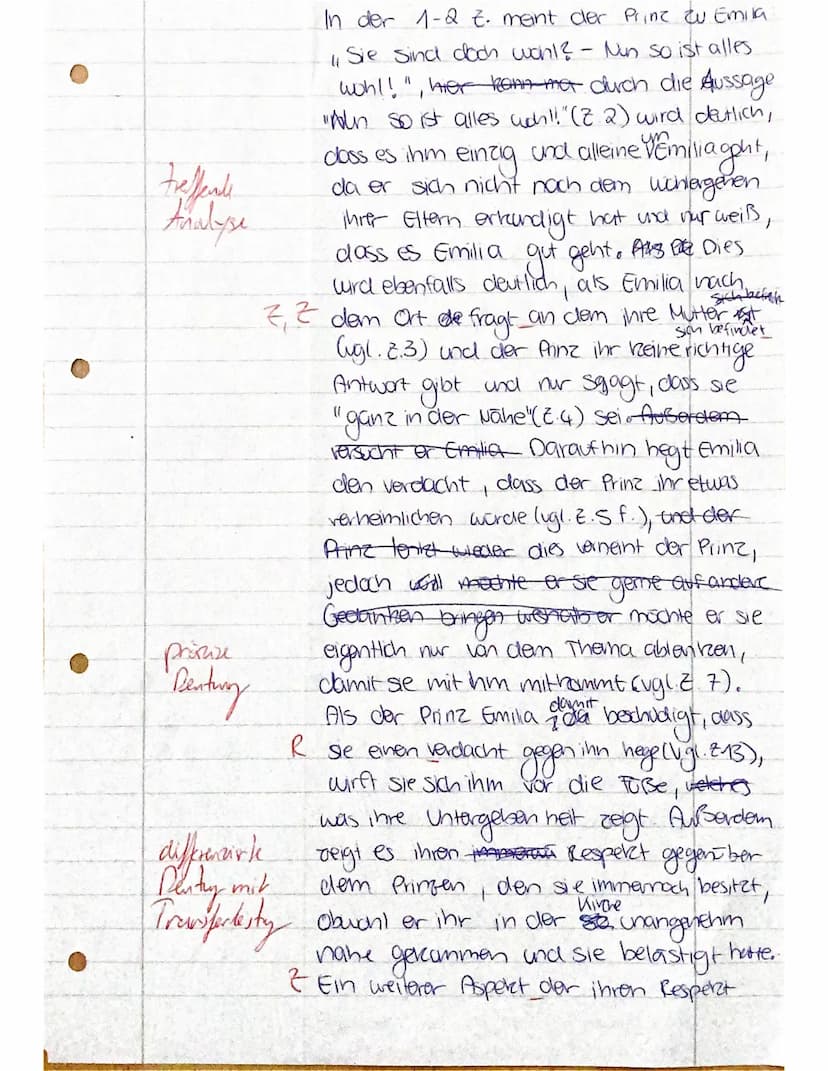 In der 1-2 Z. meint der Prinz zu Emilia
„Sie sind doch wohl? – Nun so ist alles
wohl!", hier kann ma durch die Aussage
"Nun so ist alles wohl!"(Z 2) wird deutlich,
dass es ihm einzig und alleine um Emilia geht,
treffende
Analyse
da er sich nicht nach dem wohlergehen
ihrer Eltern erkundigt hat und nur weiß,
dass es Emilia gut geht. Dies
wird ebenfalls deutlich, als Emilia nach
Z, Z
dem Ort fragt an dem ihre Mutter sich befindet
(vgl. Z.3) und der Prinz ihr keine richtige
Antwort gibt und nur sagt, dass sie
"ganz in der Nähe"(Z.4) sei. Außerdem
versucht er Emilia Daraufhin hegt Emilia
den verdacht, dass der Prinz ihr etwas
verheimlichen würde (vgl. Z.5 f.), und der
Prinz lenkt wieder dies verneint der Prinz,
jedoch will möchte er sie gerne auf andere
Gedanken bringen weshalb er möchte er sie
präzise
Deutung
eigentlich nur von dem Thema ablenken,
damit sie mit ihm mitkommt (vgl. Z. 7).
Als der Prinz Emilia damit beschuldigt, dass
R
sie einen verdacht gegen ihn hege (vgl. Z 13),
wirft sie sich ihm vor die Füße, welches
was ihre Untergebenheit zeigt. Außerdem
differenzierte
Deutung mit
Transferleistg
zeigt es ihren Respekt gegenüber
dem Prinzen, den sie immernoch besitzt,
obwohl er ihr in der Kirche unangenehm
nahe gekommen und sie belästigt hatte.
Z
Ein weiterer Aspekt der ihren Respekt